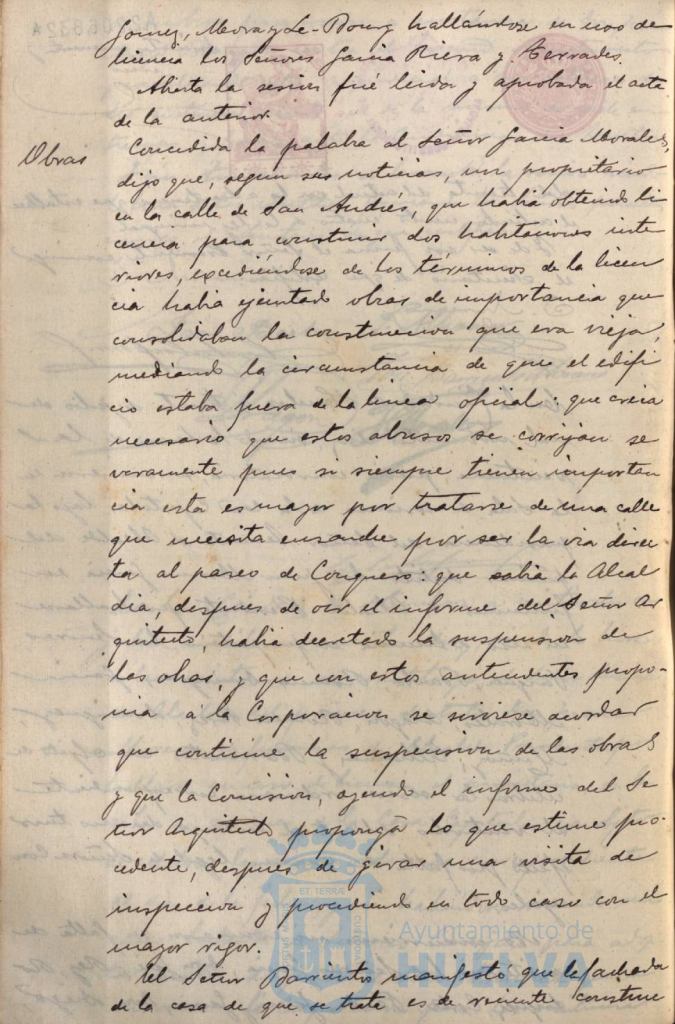 Gomez, Mora y Le-Bourg hallándose en uso de
licencia los Señores Garcia Riera y Terrades.
Abierta la sesion fué leida y aprobada el acta
de la anterior.
Obras
Concedida la palabra al Señor Garcia Morales,
dijo que, segun sus noticias, un propietario
en la calle de San Andrés, que habia obtenido li
cencia para construir dos habitaciones inte
riores, excediéndose de los términos de la licen
cia habia ejecutado obras de importancia que
consolidaban la construccion que era vieja,
mediando la circunstancia de que el edifi
cio estaba fuera de la linea oficial: que creia
necesario que estos abusos se corrijan se
veramente pues si siempre tienen importan
cia esta es mayor por tratarse de una calle
que necesita ensanche por ser la via direc
ta al paseo de Conquero: que sabia la Alcal
dia, despues de oir el informe del Señor Ar
quitecto, habia decretado la suspension de
las obras, y que con estos antecedentes propo-
nia á la Corporacion se sirviese acordar
que continue la suspension de las obras
y que la Comision, oyendo el informe del Se
ñor Arquitecto proponga lo que estime pro
cedente, despues de girar una visita de
inspeccion y procediendo en todo caso con el
mayor rigor.
El Señor Barrientos manifestó que la fachada
de la casa de que se trata es de reciente construc
Ayuntamiento de
HUELVA